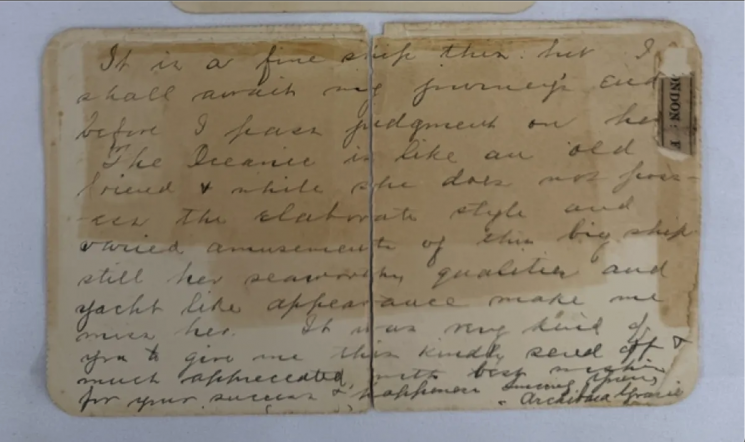 It is a fine ship this but I
shall await my journey's end
before I pass judgment on her
The Oceanic is like an old
friend & while she does not poss-
-ess the elaborate style and
varied amusements of this big ship
still her seaworthy qualities and
yacht like appearance make me
miss her. It was very kind of
you to give me this kindly send off &
much appreciated, with best wishes
for your success & happiness Sincerely yours,
Archibald Gracie
ONDON: E